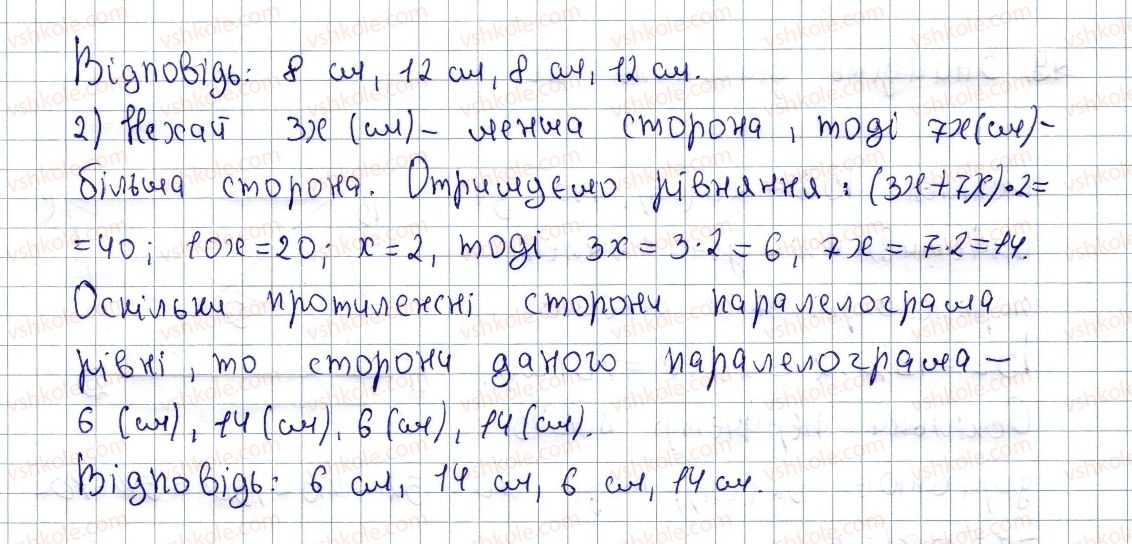 Відповідь: 8 см, 12 см, 8 см, 12 см.
2) Нехай 3x (см) – менша сторона, тоді 7x (см) –
більша сторона. Отримуємо рівняння: (3x+7x)·2=
=40; 10x=20; x=2, тоді 3x=3·2=6; 7x=7·2=14.
Оскільки протилежні сторони паралелограма
рівні, то сторони даного паралелограма –
6 (см), 14 (см), 6 (см), 14 (см).
Відповідь: 6 см, 14 см, 6 см, 14 см.